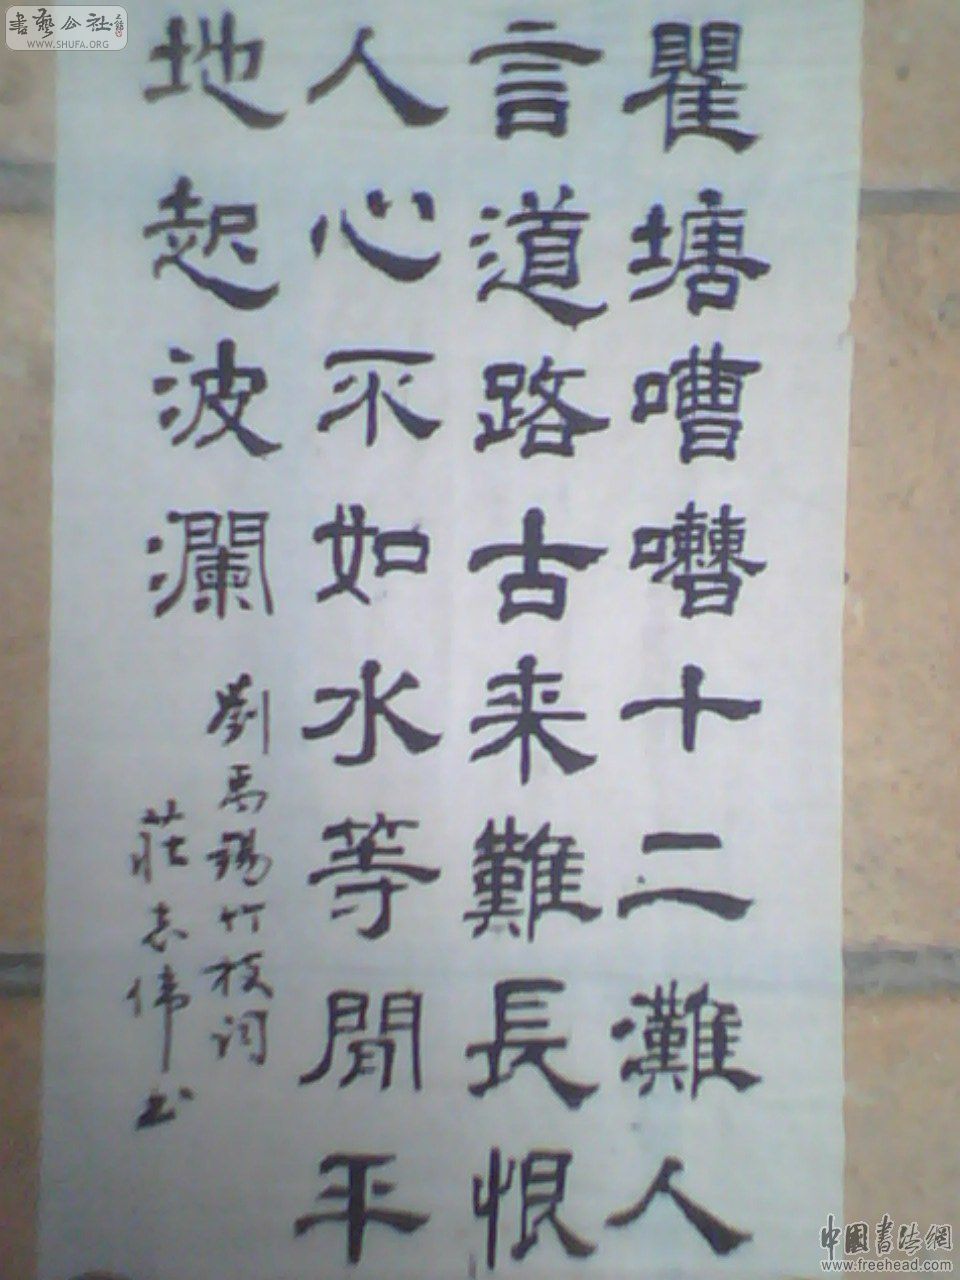 瞿塘嘈囋十二灘人
言道路古来難長恨
人心不如水等閒平
地起波瀾
劉禹錫竹枝詞
莊志偉书
書藝公社
WWW.SHUFA.ORG
中國書法網
www.freehead.com